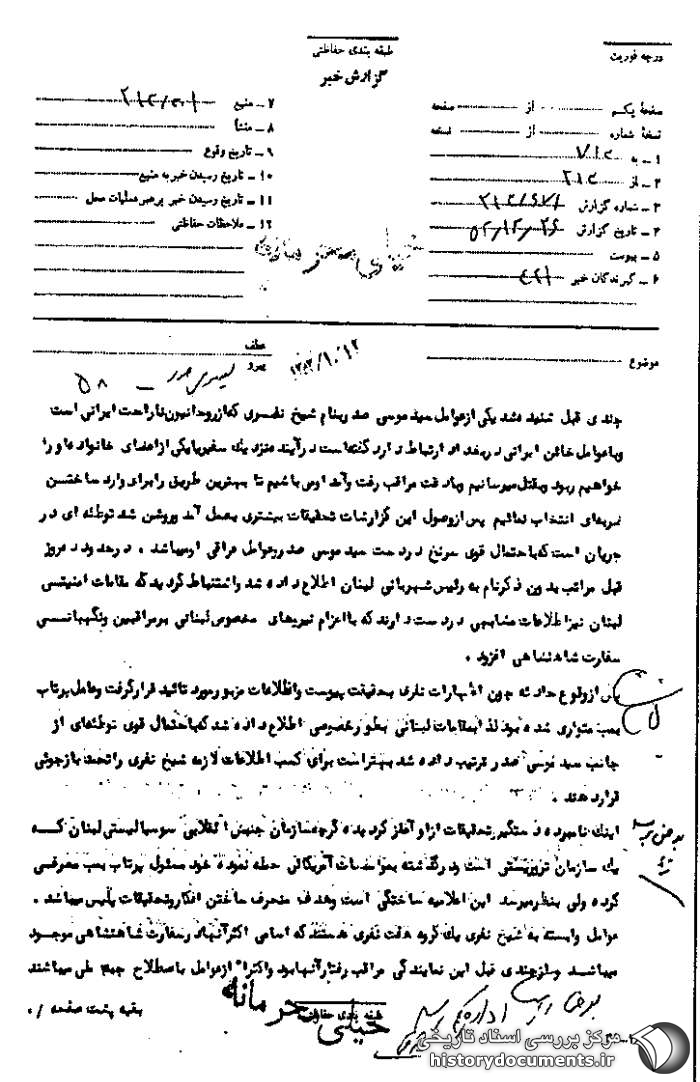 طبقه بندی حفاظتی
درجه فوریت
گزارش خبر
صفحه یکم از صفحه
نسخهٔ شماره از نسخه
۱ ـ به ۷۱۲
۲ ـ از ۲۱۲
۳ ـ شماره گزارش
۴ ـ تاریخ گزارش
۵ ـ پیوست
۶ ـ گیرندگان خبر
۷ ـ منبع
۸ ـ منشأ
۹ ـ تاریخ وقوع
۱۰ ـ تاریخ رسیدن خبر به منبع
۱۱ ـ تاریخ رسیدن خبر برهبر عملیات محل
۱۲ ـ ملاحظات حفاظتی
خیلی محرمانه
موضوع
عطف
پیرو
چندی قبل شنیده شد یکی از عوامل سید موسی صدر بنام شیخ نفری که از روحانیون ناراحت ایرانی است
وبا عوامل خائن ایرانی در بغداد ارتباط دارد گفته است در آینده نزدیک سفیر یا یکی از اعضای خانواده او را
خواهیم ربود و بقتل میرسانیم وبا دقت مراقب رفت وآمد او می باشیم تا بهترین طریق را برای وارد ساختن
ضربه ای انتخاب نمائیم پس از وصول این گزارشات تحقیقات بیشتری بعمل آمد و روشن شد توطئه ای در
جریان است که با احتمال قوی سرنخ در دست سید موسی صدر و عوامل عراقی او میباشد . در حدود ده روز
قبل مراتب بدون ذکر نام به رئیس شهربانی لبنان اطلاع داده شد و استنباط گردید که مقامات امنیتی
لبنان نیز اطلاعات مشابهی در دست دارند که با اعزام نیروهای مخصوص لبنانی بر مراقبین ونگهبانی
سفارت شاهنشاهی افزود .
پس از وقوع حادثه چون اظهارات نفری بحقیقت پیوست واطلاعات مزبور مورد تائید قرار گرفت وعامل پرتاب
بمب متواری شده بود لذا بمقامات لبنانی بطور خصوصی اطلاع داده شد که با احتمال قوی توطئه ای از
جانب سید موسی صدر ترتیب داده شد بهتر است برای کسب اطلاعات لازمه شیخ نفری را تحت بازجوئی
قرار دهند .
اینک نامبرده دستگیر وتحقیقات از او آغاز گردیده گرچه سازمان جنبش انقلابی سوسیالیستی لبنان که
یک سازمان تروریستی است ودر گذشته بمؤسسات آمریکائی حمله نموده خود مسئول پرتاب بمب معرفی
کرده ولی بنظر میرسد این اعلامیه ساختگی است وهدف منحرف ساختن افکار وتحقیقات پلیس میباشد .
عوامل وابسته به شیخ نفری یک گروه هفت نفری هستند که اسامی اکثر آنها در سفارت شاهنشاهی موجود
میباشد واز چندی قبل این نمایندگی مراقب رفتار آنها بود واکثراً از عوامل باصطلاح جبهه ملی میباشند
بقیه پشت صفحه /.
طبقه بندی حفاظتی
خیلی محرمانه
مرکز بررسی اسناد تاریخی
historydocuments.ir